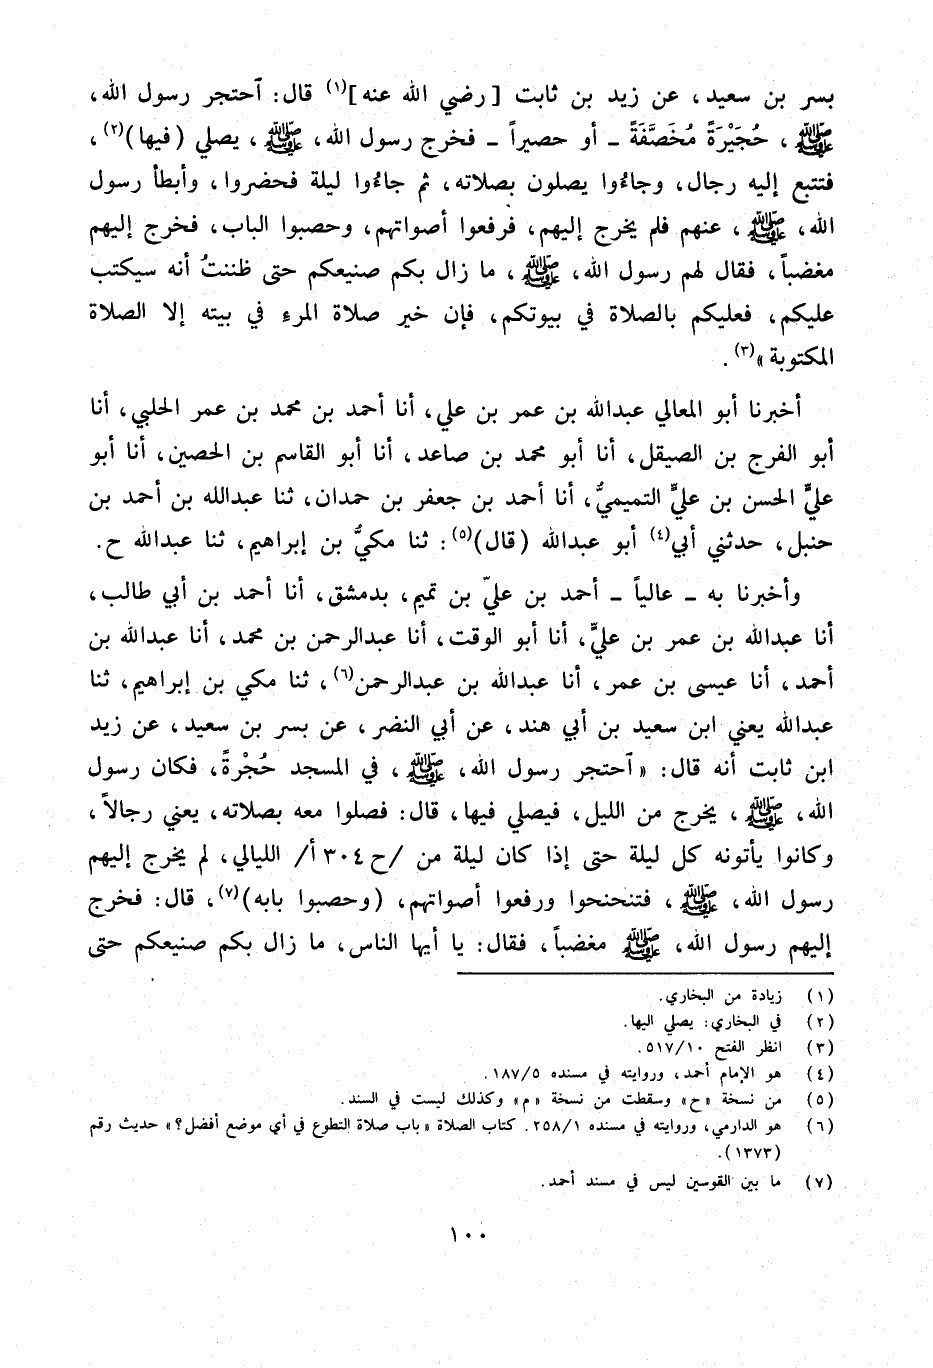 بسر بن سعيد، عن زيد بن ثابت [رضي الله عنه](١) قال: آحتجر رسول الله،
ﷺ، حُجَيْرَةً مُخَصَّفَةً ـ أو حصيراً ـ فخرج رسول الله، ﷺ، يصلي (فيها)(٢)،
فتتبع إليه رجال، وجاءُوا يصلون بصلاته، ثم جاءُوا ليلة فحضروا، وأبطأ رسول
الله، ﷺ، عنهم فلم يخرج إليهم، فرفعوا أصواتهم، وحصبوا الباب، فخرج إليهم
مغضباً، فقال لهم رسول الله، ﷺ، ما زال بكم صنيعكم حتى ظننتُ أنه سيكتب
عليكم، فعليكم بالصلاة في بيوتكم، فإن خير صلاة المرء في بيته إلا الصلاة
المكتوبة»(٣).
أخبرنا أبو المعالي عبدالله بن عمر بن علي، أنا أحمد بن محمد بن عمر الحلبي، أنا
أبو الفرج بن الصيقل، أنا أبو محمد بن صاعد، أنا أبو القاسم بن الحصين، أنا أبو
عليٍّ الحسن بن عليٍّ التميميُّ، أنا أحمد بن جعفر بن حمدان، ثنا عبدالله بن أحمد بن
حنبل، حدثني أبي(٤) أبو عبدالله (قال)(٥): ثنا مكيُّ بن إبراهيم، ثنا عبدالله ح.
وأخبرنا به ـ عالياً ـ أحمد بن عليّ بن تميم، بدمشق، أنا أحمد بن أبي طالب،
أنا عبدالله بن عمر بن عليٍّ، أنا أبو الوقت، أنا عبدالرحمن بن محمد، أنا عبدالله بن
أحمد، أنا عيسى بن عمر، أنا عبدالله بن عبدالرحمن(٦)، ثنا مكي بن إبراهيم، ثنا
عبدالله يعني ابن سعيد بن أبي هند، عن أبي النضر، عن بسر بن سعيد، عن زيد
ابن ثابت أنه قال: «آحتجر رسول الله، ﷺ، في المسجد حُجْرةً، فكان رسول
الله، ﷺ، يخرج من الليل، فيصلي فيها، قال: فصلوا معه بصلاته، يعني رجالاً،
وكانوا يأتونه كل ليلة حتى إذا كان ليلة من /ح ٣٠٤ أ/ الليالي، لم يخرج إليهم
رسول الله، ﷺ، فتنحنحوا ورفعوا أصواتهم، (وحصبوا بابه)(٧)، قال: فخرج
إليهم رسول الله، ﷺ مغضباً، فقال: يا أيها الناس، ما زال بكم صنيعكم حتى
(١) زيادة من البخاري.
(٢) في البخاري: يصلي اليها.
(٣) انظر الفتح ٥١٧/١٠.
(٤) هو الإمام أحمد، وروايته في مسنده ١٨٧/٥.
(٥) من نسخة «ح» وسقطت من نسخة «م» وكذلك ليست في السند.
(٦) هو الدارمي، وروايته في مسنده ٢٥٨/١. كتاب الصلاة «باب صلاة التطوع في أي موضع أفضل؟» حديث رقم
(١٣٧٣).
(٧) ما بين القوسين ليس في مسند أحمد.
١٠٠